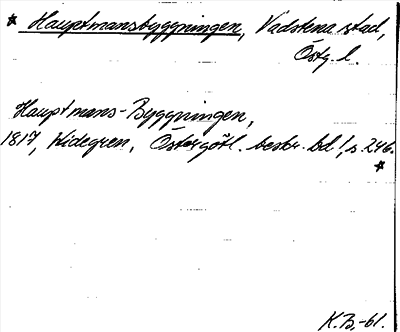 * Hauptmansbyggningen, Vadstena stad,
Östg. l.
Hauptmans-Byggningen,
1817, Widegren, Östergötl. beskr. bd 1, s 246.
*
K.B.-61.